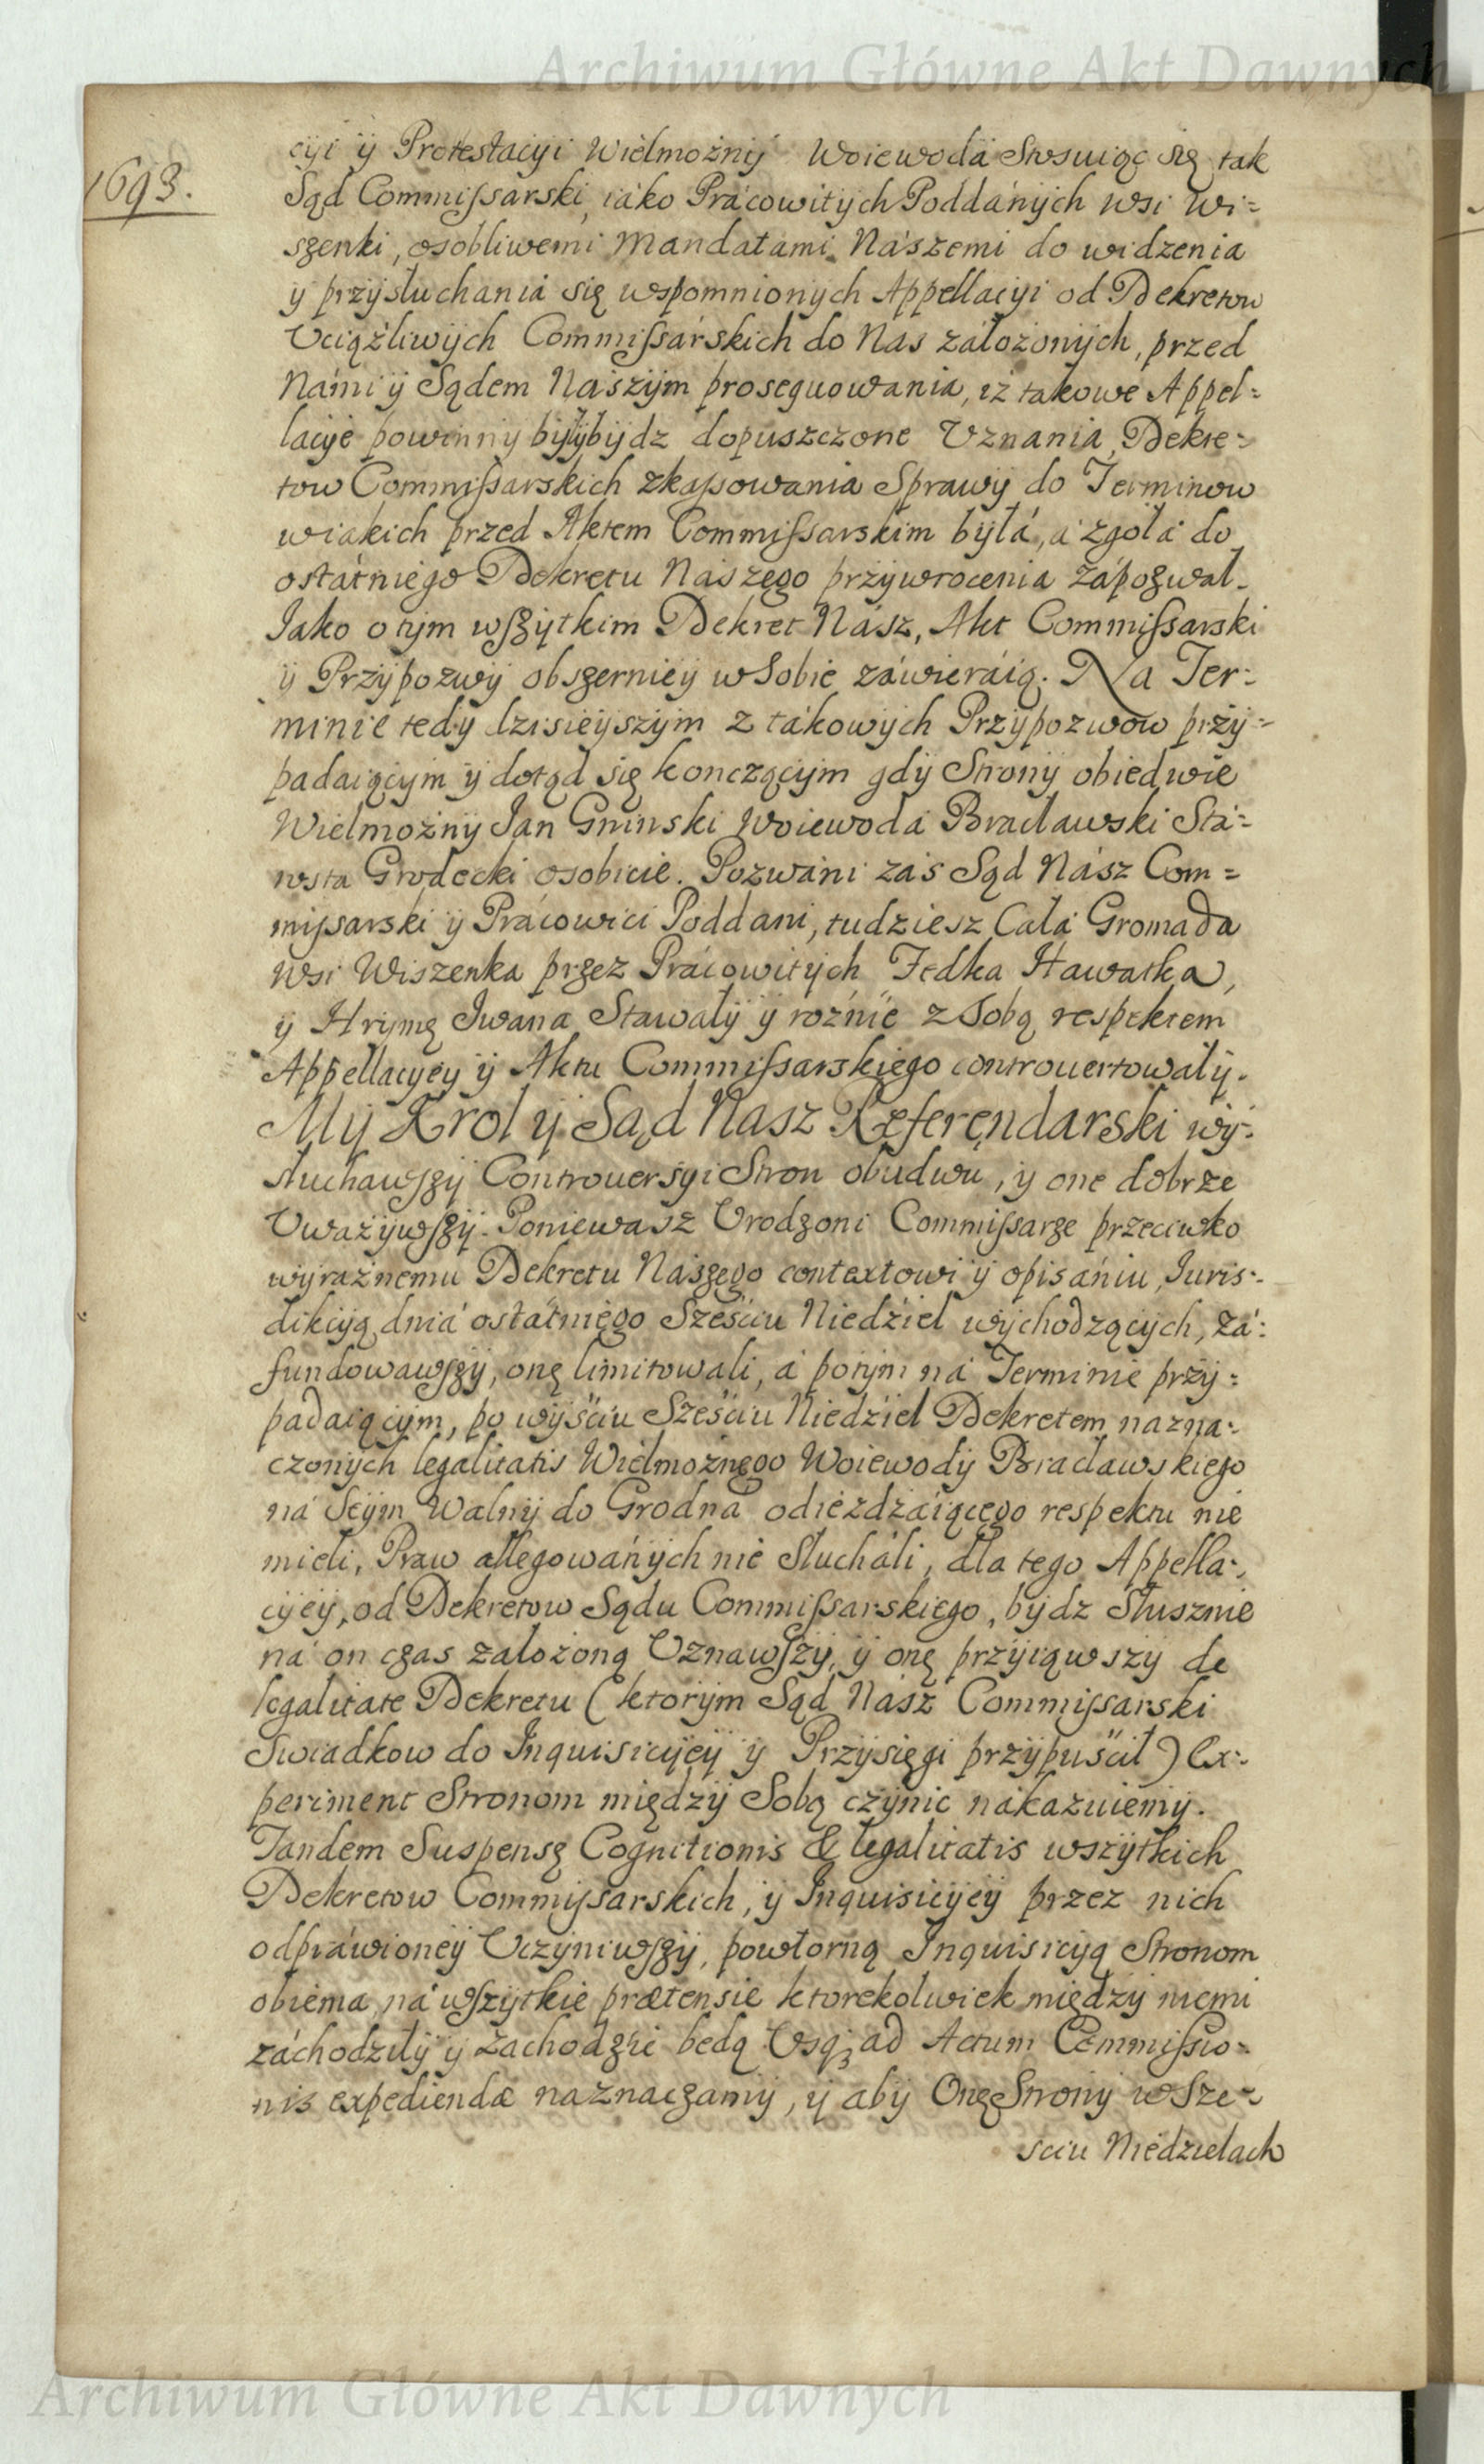 Archiwum Główne Akt Dawnych
1693.
cÿi ÿ Protestacÿi Wielmożnÿ Woiewodá Stosuiąc się tak
Sąd Commissarski, iáko Prácowitÿch Poddánÿch wsi Wi=
szenki, osobliwemi Mandatami Nászemi do widzenia
ÿ przÿsłuchania się wspomnionÿch Appellacÿi od Dekretow
Vciążliwÿch Commissárskich do Nas záłożonÿch, przed
Námi ÿ Sądem Nászÿm prosequowania, iż takowe Appel=
lacÿe powinnÿ bÿłÿ bÿdz dopuszczone Vznania, Dekre=
tow Commissarskich zkassowania Sprawÿ do Terminow
wiakich przed Aktem Commissarskim bÿłá, á zgołá do
ostátniego Dekretu Nászego przÿwrocenia zápozwał.
Jako o tÿm wszÿtkim Dekret Nász, Akt Commissarski
ÿ Przÿpozwÿ obszerniéÿ w Sobie záwieráią. Na Ter=
minie tedÿ dzisieÿszÿm z tákowÿch Przÿpozwow przÿ=
padaiącÿm ÿ dotąd się konczącÿm gdÿ Stronÿ obiedwie
Wielmożnÿ Jan Gninski Woiewodá Bracławski Stá=
rosta Grodecki osobicie. Pozwáni zás Sąd Nász Com=
missarski ÿ Prácowici Poddani, tudziesz Całá Gromada
wsi Wiszenka przez Prácowitÿch Fedka Hawatka,
ÿ Hrÿnię Iwana Stawałÿ ÿ rożnie z Sobą respektem
Appellacÿeÿ ÿ Aktu Commissarskiego controuertowałÿ.
Mÿ Krol ÿ Sąd Nasz Referendarski wÿ=
słuchawszÿ Controuersÿi Stron obudwu, ÿ one dobrze
Vważÿwszÿ. Poniewasz Vrodzoni Commissarze przeciwko
wÿraźnemu Dekretu Nászego contextowi ÿ opisániu, Iuris=
dikcÿą dniá ostátniego Sześciu Niedźiel wÿchodzącÿch, zá=
fundowawszÿ, onę limitowali, á potÿm ná Terminie przÿ=
padaiącÿm, po wÿściu Sześciu Niedźiel Dekretem nazna=
czonÿch legalitatis Wielmożnego Woiewodÿ Bracławskiego
ná Seÿm Walnÿ do Grodná odieżdżáiącego respektu nie
mieli, Praw allegowánÿch nie Słucháli, dla tego Appella=
cÿeÿ, od Dekretow Sądu Commissarskiego, bÿdz Słusznie
ná on czas założoną Vznawszÿ, ÿ onę przÿiąwszÿ de
legalitate Dekretu (ktorÿm Sąd Nász Commissarski
Swiadkow do Inquisicÿeÿ ÿ Przÿsięgi przÿpuścił) Ex=
periment Stronom międzÿ Sobą czÿnic nákazuiemÿ.
Tandem Suspensę Cognitionis & legalitatis wszÿtkich
Dekretow Commissarskich, ÿ Inquisicÿeÿ przez nich
odpráwioneÿ Vczÿniwszÿ, powtorną Inquisicÿą Stronom
obiema ná wszÿtkie prætensie ktorekolwiek międzÿ niemi
záchodziłÿ ÿ zachodzić będą Vsq; ad Actum Commissio=
nis expediendæ naznaczamÿ, ÿ abÿ Onę Stronÿ w Sze=
sciu Niedzielach
Archiwum Główne Akt Dawnych